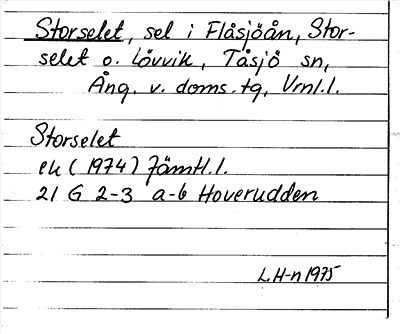 Storselet, sel i Flåsjöån, Stor-
selet o. Lövvik, Tåsjö sn,
Ång. v. doms. tg, Vrnl. l.
Storselet
ek (1974) Jämtl. l.
21 G 2-3 a-b Hoverudden
L. H-n 1975